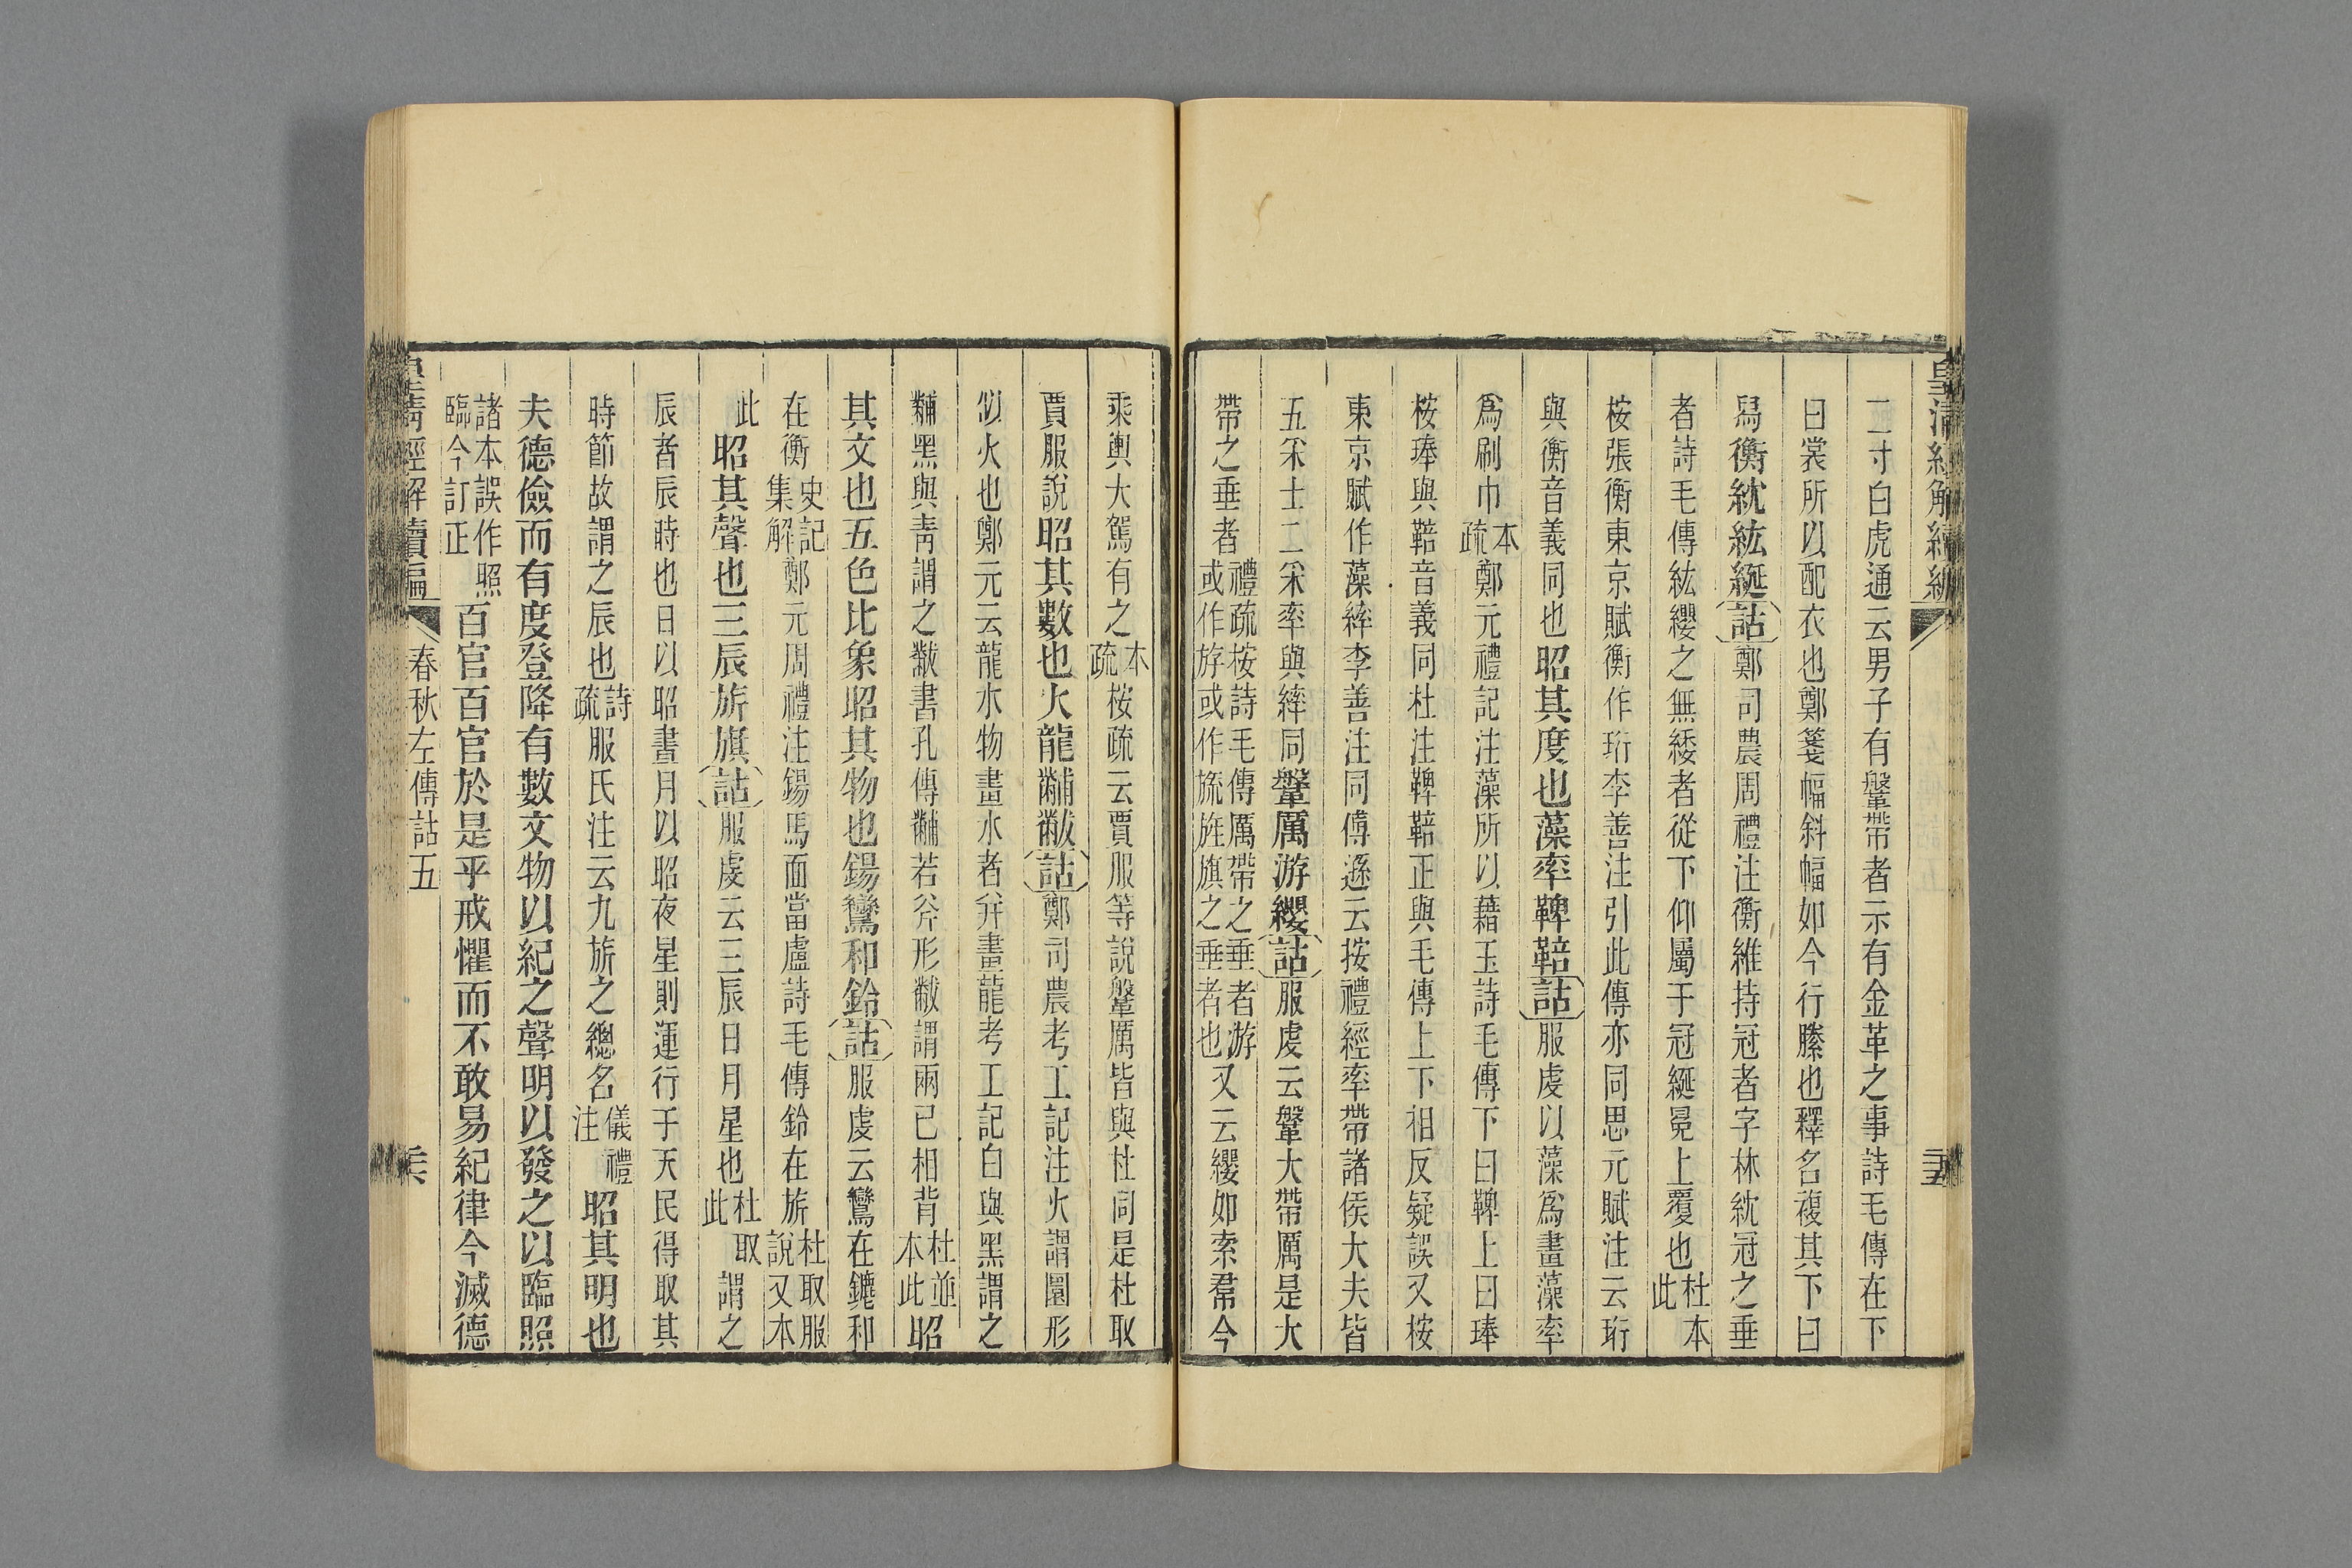 皇清經解續編
二寸白虎通云男子有鞶帶者示有金革之事詩毛傳在下
曰裳所以配衣也鄭箋幅斜幅如今行縢也釋名複其下曰
舄衡紞紘綖詁鄭司農周禮注衡維持冠者字林紞冠之垂
者詩毛傳紘纓之無緌者從下仰屬于冠綖冕上覆也杜本此
桉張衡東京賦衡作珩李善注引此傳亦同思元賦注云珩
與衡音義同也昭其度也藻率鞞鞛詁服虔以藻爲畫藻率
爲刷巾本疏鄭元禮記注藻所以藉玉詩毛傳下曰鞞上曰琫
桉琫與鞛音義同杜注鞞鞛正與毛傳上下相反疑誤又桉
東京賦作藻繂李善注同傅遜云按禮經率帶諸侯大夫皆
五采士二采率與繂同鞶厲游纓詁服虔云鞶大帶厲是大
帶之垂者禮疏桉詩毛傳厲帶之垂者游或作斿或作旒旌旗之垂者也又云纓如索帬今
乘輿大駕有之本疏桉疏云賈服等說鞶厲皆與杜同是杜取
賈服說昭其數也火龍黼黻詁鄭司農考工記注火謂圜形
似火也鄭元云龍水物畫水者幷畫龍考工記白與黑謂之
黼黑與靑謂之黻書孔傳黼若斧形黻謂兩已相背杜並本此昭
其文也五色比象昭其物也鍚鸞和鈴詁服虔云鸞在鑣和
在衡史記集解鄭元周禮注鍚馬面當盧詩毛傳鈴在旂杜取服說又本
此昭其聲也三辰旂旗詁服虔云三辰日月星也杜取此謂之
辰者辰時也日以昭晝月以昭夜星則運行于天民得取其
時節故謂之辰也詩疏服氏注云九旂之總名儀禮注昭其明也
夫德儉而有度登降有數文物以紀之聲明以發之以臨照
諸本誤作照臨今訂正百官百官於是乎戒懼而不敢易紀律今滅德
皇清經解續編
春秋左傳詁五